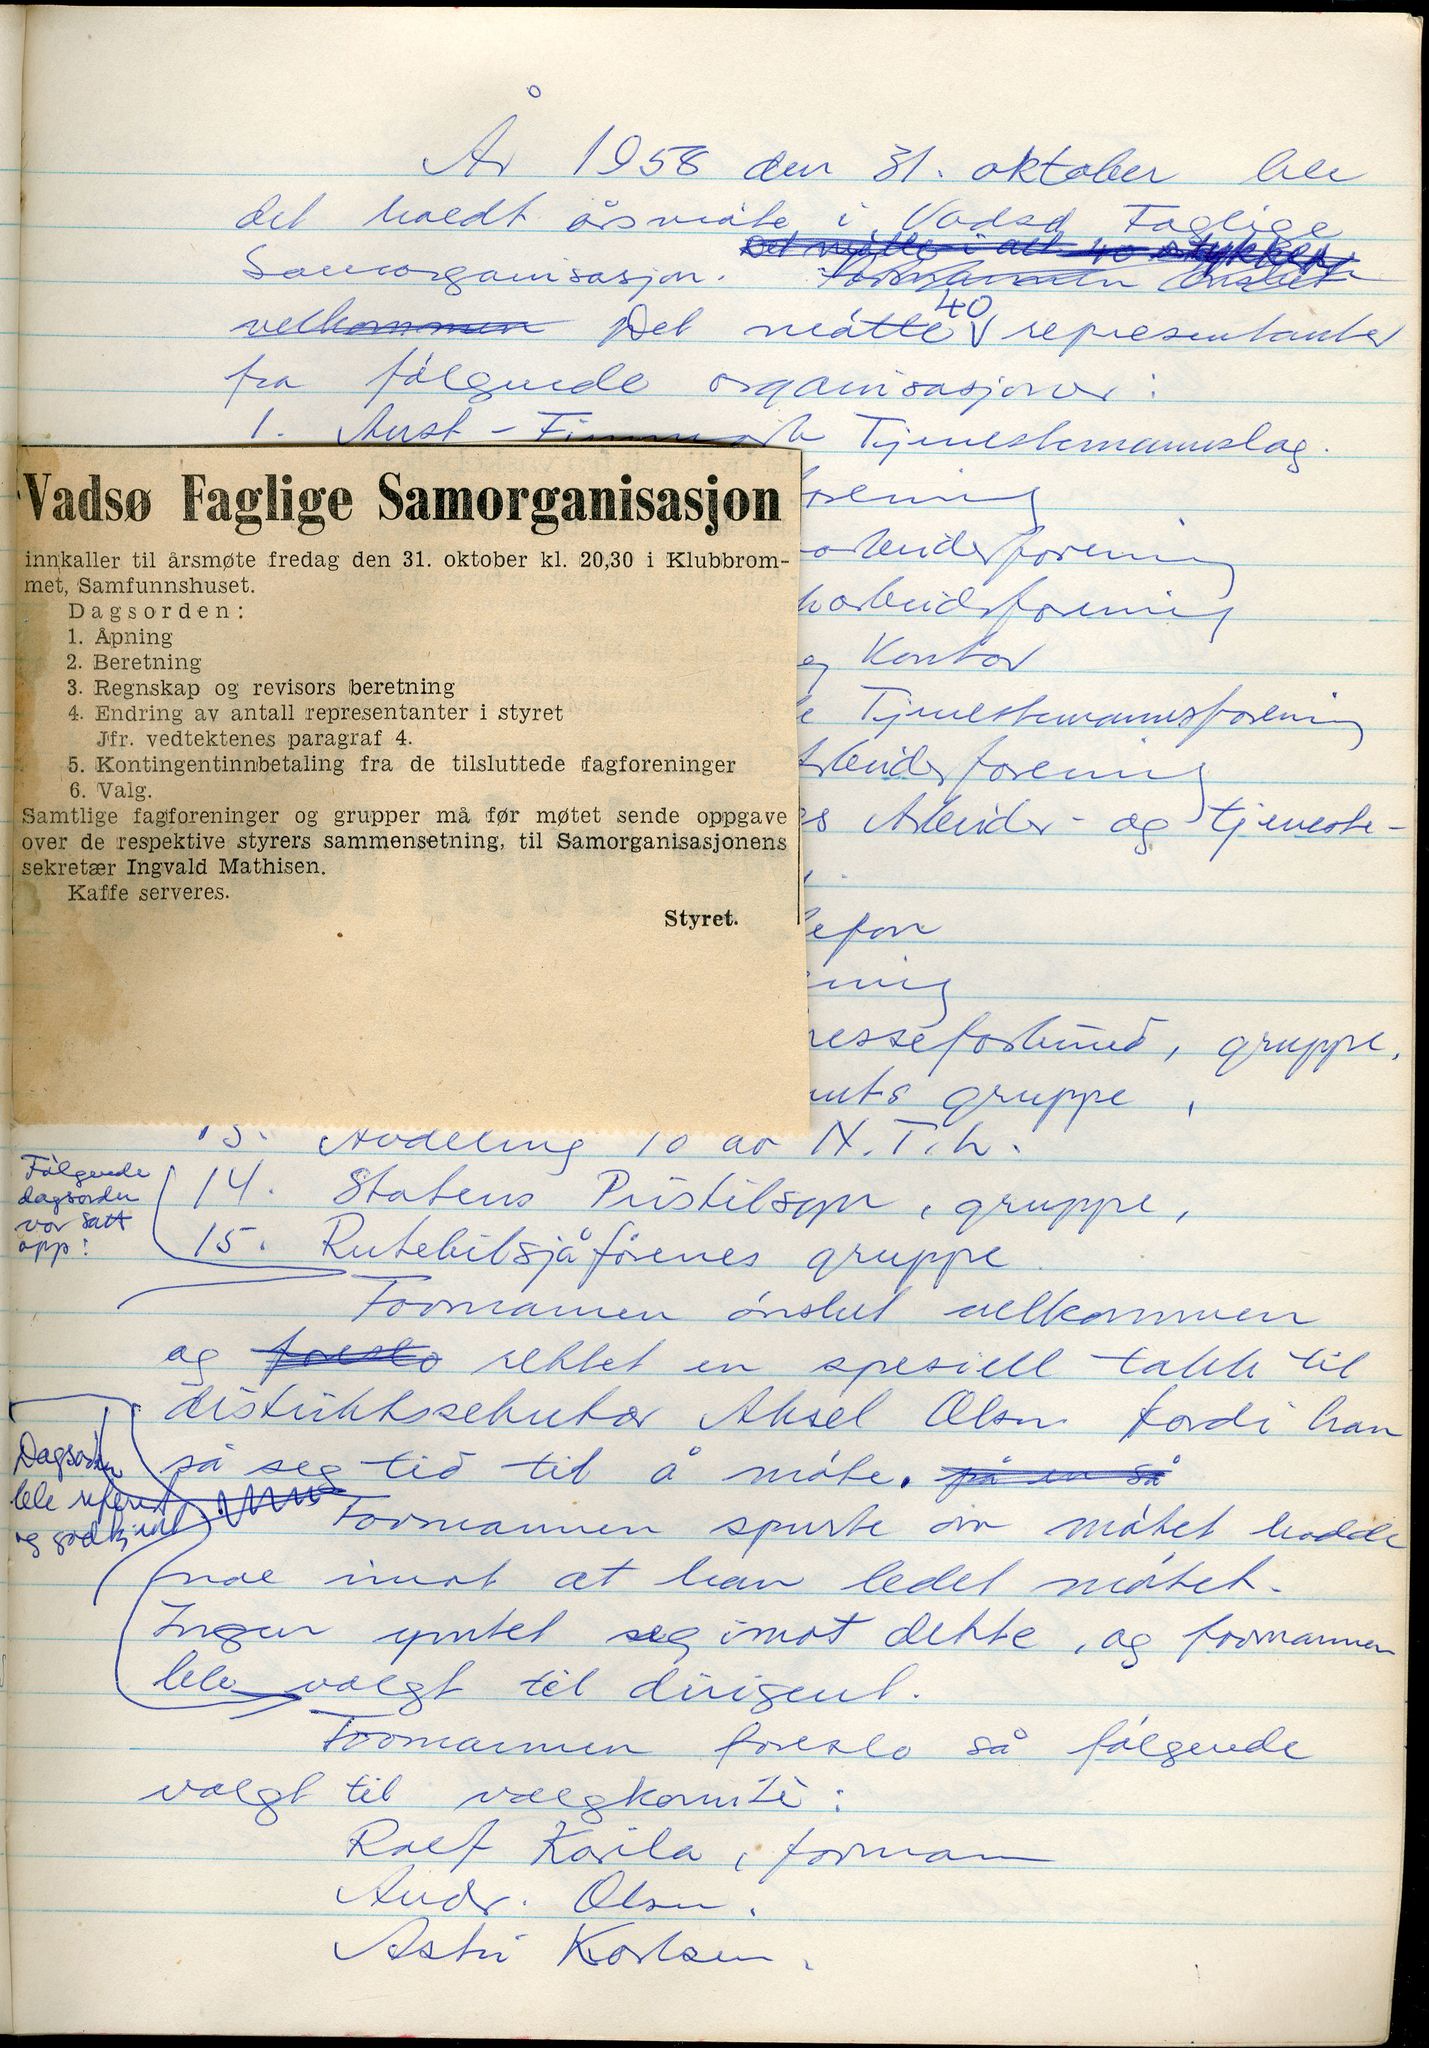 År 1958 den 31. oktober ble
det holdt årsmøte i Vadsø Faglige
Det møtte i alt 40 stykker
Samorganisasjon. Formannen ønsket
velkommen Det møtte 40 representanter
fra følgende organisasjoner:
1. Aust-Finnmark Tjenestemannslag.
orening
arbeiderforening
harbeidsforening
og Kontor
e Tjenestemannsforening
Arbeiderforening
s Arbeider- og tjeneste-
lefon
ning
resseforbund, gruppe.
nts gruppe,
13. Avdeling 10 av N.T.L.
14. Statens Pristilsyn, gruppe,
15. Rutebilsjåførenes gruppe
Vadsø Faglige Samorganisasjon
innkaller til årsmøte fredag den 31. oktober kl. 20,30 i Klubbrom-
met, Samfunnshuset.
Dagsorden:
1. Åpning
2. Beretning
3. Regnskap og revisors beretning
4. Endring av antall representanter i styret
Jfr. vedtektenes paragraf 4.
5. Kontingentinnbetaling fra de tilsluttede fagforeninger
6. Valg.
Samtlige fagforeninger og grupper må før møtet sende oppgave
over de respektive styrers sammensetning, til Samorganisasjonens
sekretær Ingvald Mathisen.
Kaffe serveres.
Styret.
Følgende
dagsorden
var satt
opp:
Formannen ønsket velkommen
og foreslo rettet en spesiell takk til
distriktssekretær Aksel Olsen fordi han
så seg tid til å møte. på en så
Dagsorden
ble referert
og godkjent
Formannen spurte om møtet hadde
noe imot at han ledet møtet.
Ingen ymtet seg imot dette, og formannen
ble valgt til dirigent.
Formannen foreslo så følgende
valgt til valgkomité:
Rolf Karila, formann
Andr. Olsen.
Astri Karlsen.